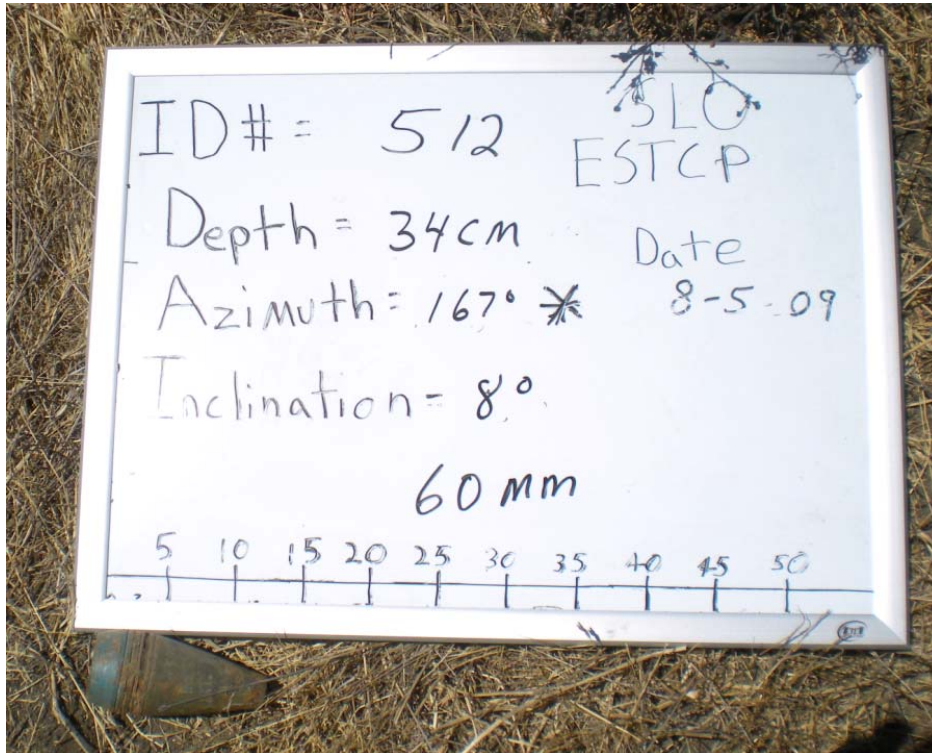 ID# = 512
SLO
ESTCP
Depth = 34cm
Date
Azimuth = 167° *
8-5-09
Inclination = 8°
60 mm
5 10 15 20 25 30 35 40 45 50